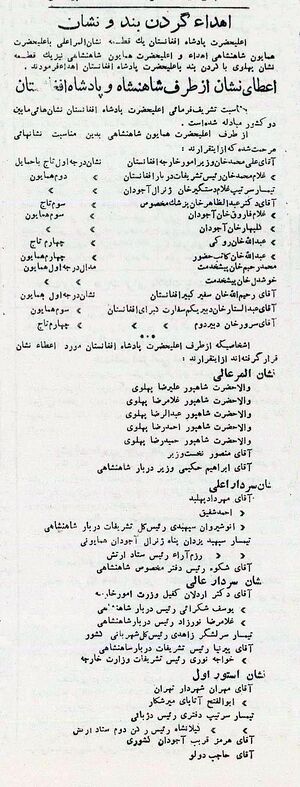 اهداء گردن بند و نشان
اعلیحضرت پادشاه افغانستان یک قطعه نشان المر اعلی باعلیحضرت
همایون شاهنشاهی اهداء و اعلیحضرت همایون شاهنشاهی نیز یک قطعه
نشان پهلوی با گردن بند باعلیحضرت پادشاه افغانستان اهداء فرمودند.
اعطای نشان از طرف شاهنشاه و پادشاه افغانستان
بمناسبت تشریف فرمائی اعلیحضرت پادشاه افغانستان نشان هائی مابین
دو کشور مبادله شده است.
از طرف اعلیحضرت همایون شاهنشاهی بدین مناسبت نشانهائی
مرحمت شده که از اینقرارند:
آقای علی محمد خان وزیر امور خارجه افغانستان نشان درجه اول تاج با حمایل
> غلام محمد خان رئیس تشریفات دربار افغانستان > دوم همایون
تیمسار سرتیپ غلام دستگیر خان ژنرال آجودان >
آقای دکتر عبدالظاهر خان پزشک مخصوص > سوم تاج
> غلام فاروق خان آجودان > سوم همایون
> خان آجودان >
> عبدالله خان > چهارم تاج
> عبدالله خان کاتب حضور > چهارم همایون
محمد رحیم خان پیشخدمت مدال درجه اول همایون
خوشدل خان پیشخدمت >
آقای رحیم الله خان سفیر کبیر افغانستان نشان درجه اول تاج
آقای عبدالستار خان دبیر یکم سفارت کبرای افغانستان > سوم همایون
آقای سرور خان دبیر دوم > > چهارم تاج
اشخاصیکه از طرف اعلیحضرت پادشاه افغانستان مورد اعطاء نشان
قرار گرفته اند از اینقرارند:
نشان المر عالی
والاحضرت شاهپور علیرضا پهلوی
والاحضرت شاهپور غلامرضا پهلوی
والاحضرت شاهپور عبدالرضا پهلوی
والاحضرت شاهپور احمدرضا پهلوی
والاحضرت شاهپور حمیدرضا پهلوی
آقای منصور نخست وزیر
آقای ابراهیم حکیمی وزیر دربار شاهنشاهی
نشان سردار اعلی
آقای مهرداد پهلبد
> احمد شفیق
> انوشیروان سپهبدی رئیس کل تشریفات دربار شاهنشاهی
تیمسار سپهبد یزدان پناه ژنرال آجودان همایونی
> > رزم آراء رئیس ستاد ارتش
آقای شکوه رئیس دفتر مخصوص شاهنشاهی
نشان سردار عالی
آقای دکتر اردلان کفیل وزارت امور خارجه
> یوسف شکرائی رئیس دربار شاهنشاهی
> غلامرضا نورزاد رئیس دربار شاهنشاهی
تیمسار سرلشگر زاهدی رئیس کل شهربانی کشور
آقای پیرنیا رئیس تشریفات دربار شاهنشاهی
> خواجه نوری رئیس تشریفات وزارت خارجه
نشان استور اول
آقای مهران شهردار تهران
> ابوالفتح آتابای میرشکار
تیمسار سرتیپ دفتری رئیس دژبانی
> > گیلانشاه رئیس رکن دوم ستاد ارتش
آقای هرمز قریب آجودان کشوری
آقای حاجب دولو